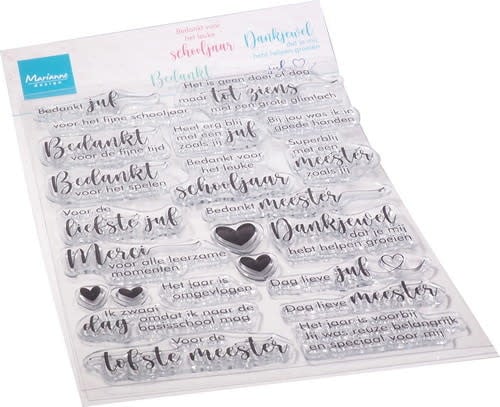 Bedankt voor
het leuke
schooljaar
Dankjewel
dat je mij
hebt helpen groeien
Bedankt
juf
Marianne
design
Bedankt juf
voor het fijne schooljaar
Het is geen doei of dag
maar tot ziens
met een grote glimlach
Bedankt
voor de fijne tijd
Heel erg blij
met een juf
zoals jij
Bij jou was ik in
goede handen
Bedankt
voor het spelen
Bedankt voor
het leuke
schooljaar
Superblij
met een
meester
zoals jij
Voor de
liefste juf
Bedankt meester
Merci
voor alle leerzame
momenten
Dankjewel
dat je mij
hebt helpen groeien
Het jaar is
omgevlogen
Dag lieve juf
Ik zwaai
dag omdat ik naar de
basisschool mag
Dag lieve
meester
Voor de
tofste meester
Het jaar is voorbij
jij was reuze belangrijk
en speciaal voor mij